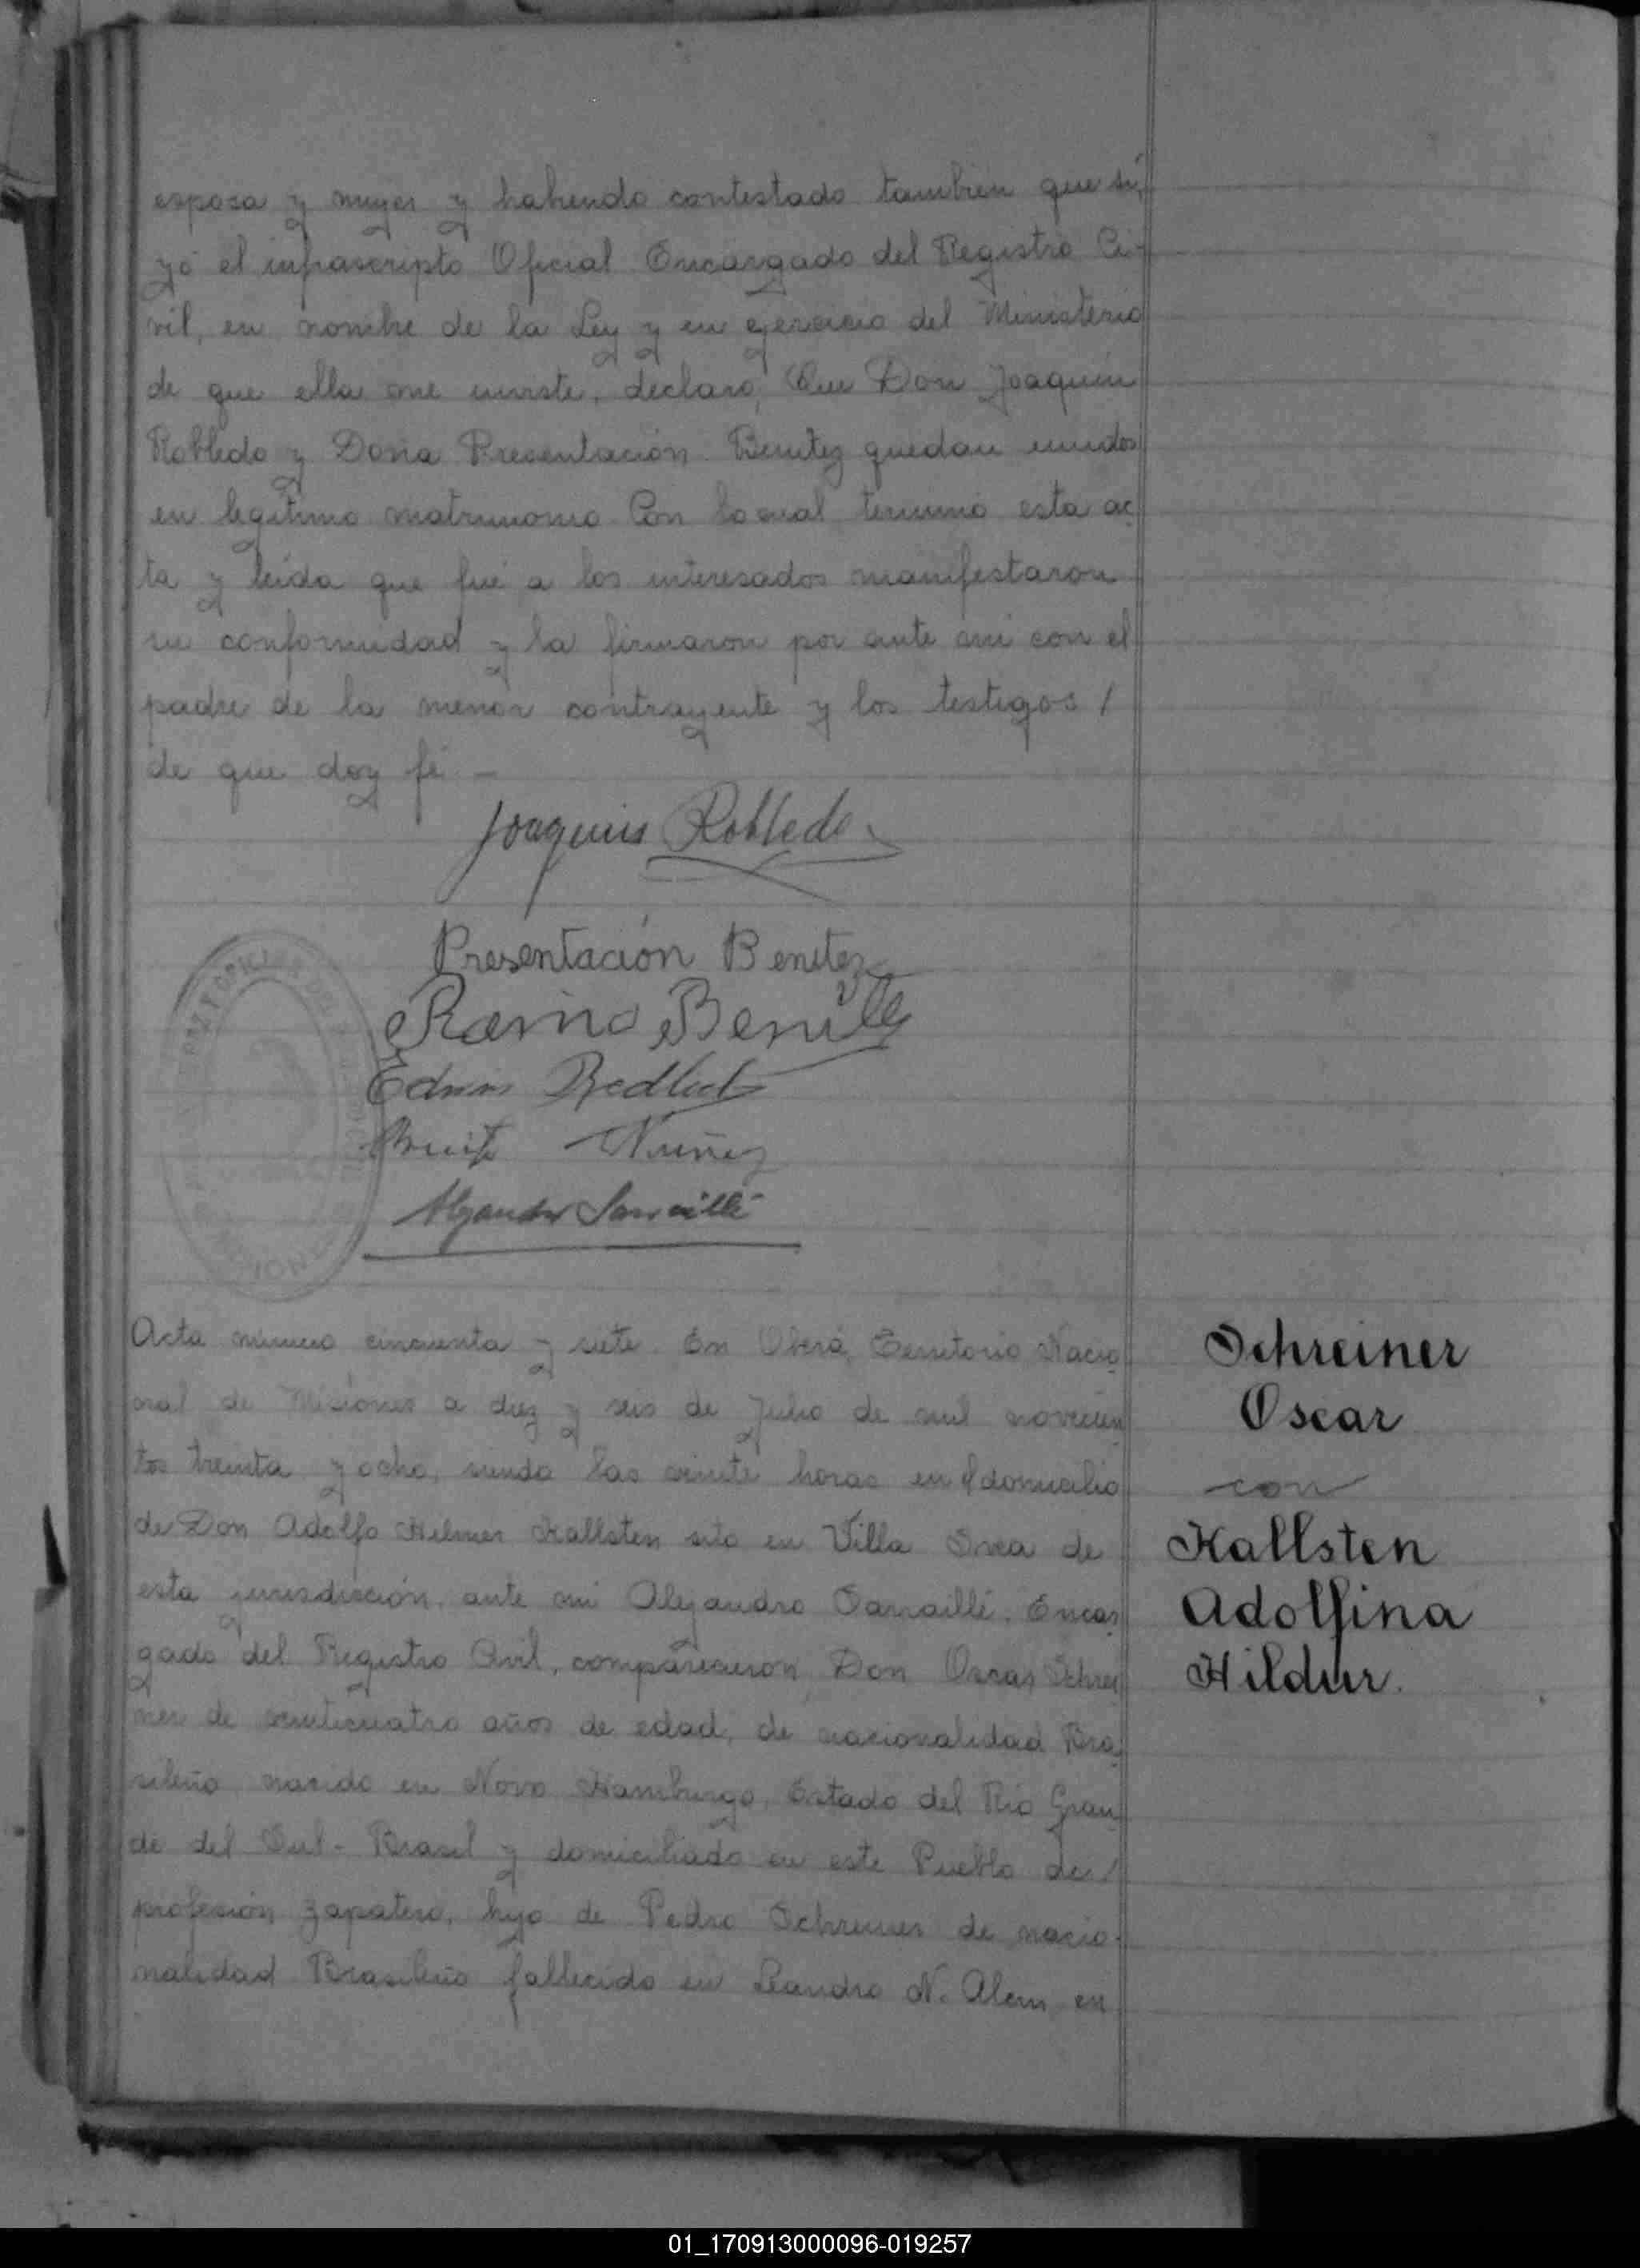 esposa y mujer y habiendo contestado también que sí,
yó el infrascripto Oficial Encargado del Registro Ci-
vil, en nombre de la Ley y en ejercicio del Ministerio
de que ella me inviste, declaro, Que Don Joaquín
Robledo y Doña Presentación Benitez quedan unidos
en legítimo matrimonio. Con lo cual terminó esta ac
ta y leida que fué a los interesados manifestaron
su conformidad y la firmaron por ante mi con el
padre de la menor contrayente y los testigos /
de que doy fé -
Joaquin Robledo
Presentación Benitez
Benitez
Edwin
Nuñez
Alejandro Sarraillé
Acta número cincuenta y siete. En Oberá, Territorio Nacio
nal de Misiones a diez y seis de Julio de mil novecien
tos treinta y ocho, siendo las veinte horas en el domicilio
de Don Adolfo Helmer Kallsten sito en Villa Svea de
esta jurisdicción, ante mi Alejandro Sarraillé, Encar
gado del Registro Civil, comparecieron, Don Oscar Schrei
ner de veinticuatro años de edad, de nacionalidad Bra
sileño nacido en Novo Hamburgo, Estado del Río Gran
de del Sul - Brasil y domiciliado en este Pueblo de /
profesión zapatero, hijo de Pedro Schreiner de nacio-
nalidad Brasileño fallecido en Leandro N. Alem en
Schreiner
Oscar
con
Kallsten
Adolfina
Hildur.
01_170913000096-019257